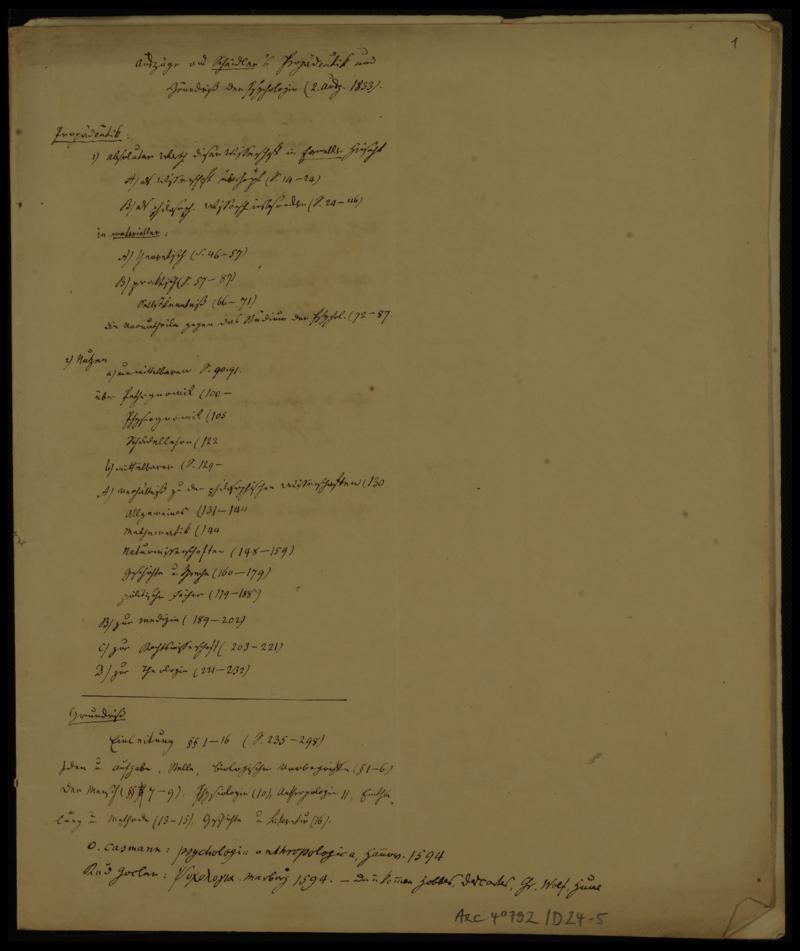 1
Auszüge aus Scheidler's Propädeutik und
Grundriß der Psychologie (2. Aufg. 1833).
Propädeutik:
1) absoluter Werth dieser Wissenschaft in formeller Hinsicht
A) als Wissenschaft überhaupt (S. 14–24)
B) als philosoph. Wissensch. insbesondere (S. 24–46)
in materieller:
A) theoretisch (S. 46–57)
B) praktisch (S. 57–87)
Selbstkenntniß (66–71)
die Vorurtheile gegen das Studium der Psychol. (72–87.
2) Nutzen
a) unmittelbarer S. 90.91.
über Pathognomik (100–
Physiognomik (105
Schädellehre (122
b) mittelbarer (S. 129–
A) Verhältniß zu den philosophischen Wissenschaften (130
Allgemeines (131–144
Mathematik (144
Naturwissenschaften (148–159)
Geschichte u Sprache (160–179)
politische Fächer (179–188)
B) zur Medizin (189–202)
C) zur Rechtswissenschaft (203–221)
D) zur Theologie (221–232)
Grundriß
Einleitung §§ 1–16 (S. 235–298)
Idee u Aufgabe, Stelle, biologische Vorbegriffe (§ 1–6)
Der Mensch (§§ 7–9). Physiologie (10), Anthropologie 11, Einthei-
lung u Methode (13–15), Geschichte u Literatur (16).
O. Casmann: psychologia anthropologica, Hannov. 1594
Rud Goclen: Ψυχολογια. Marburg 1594. – Dann kommen Hobbes, Descartes, Chr. Wolf, Hume
ARC 4° 792 / D24-5